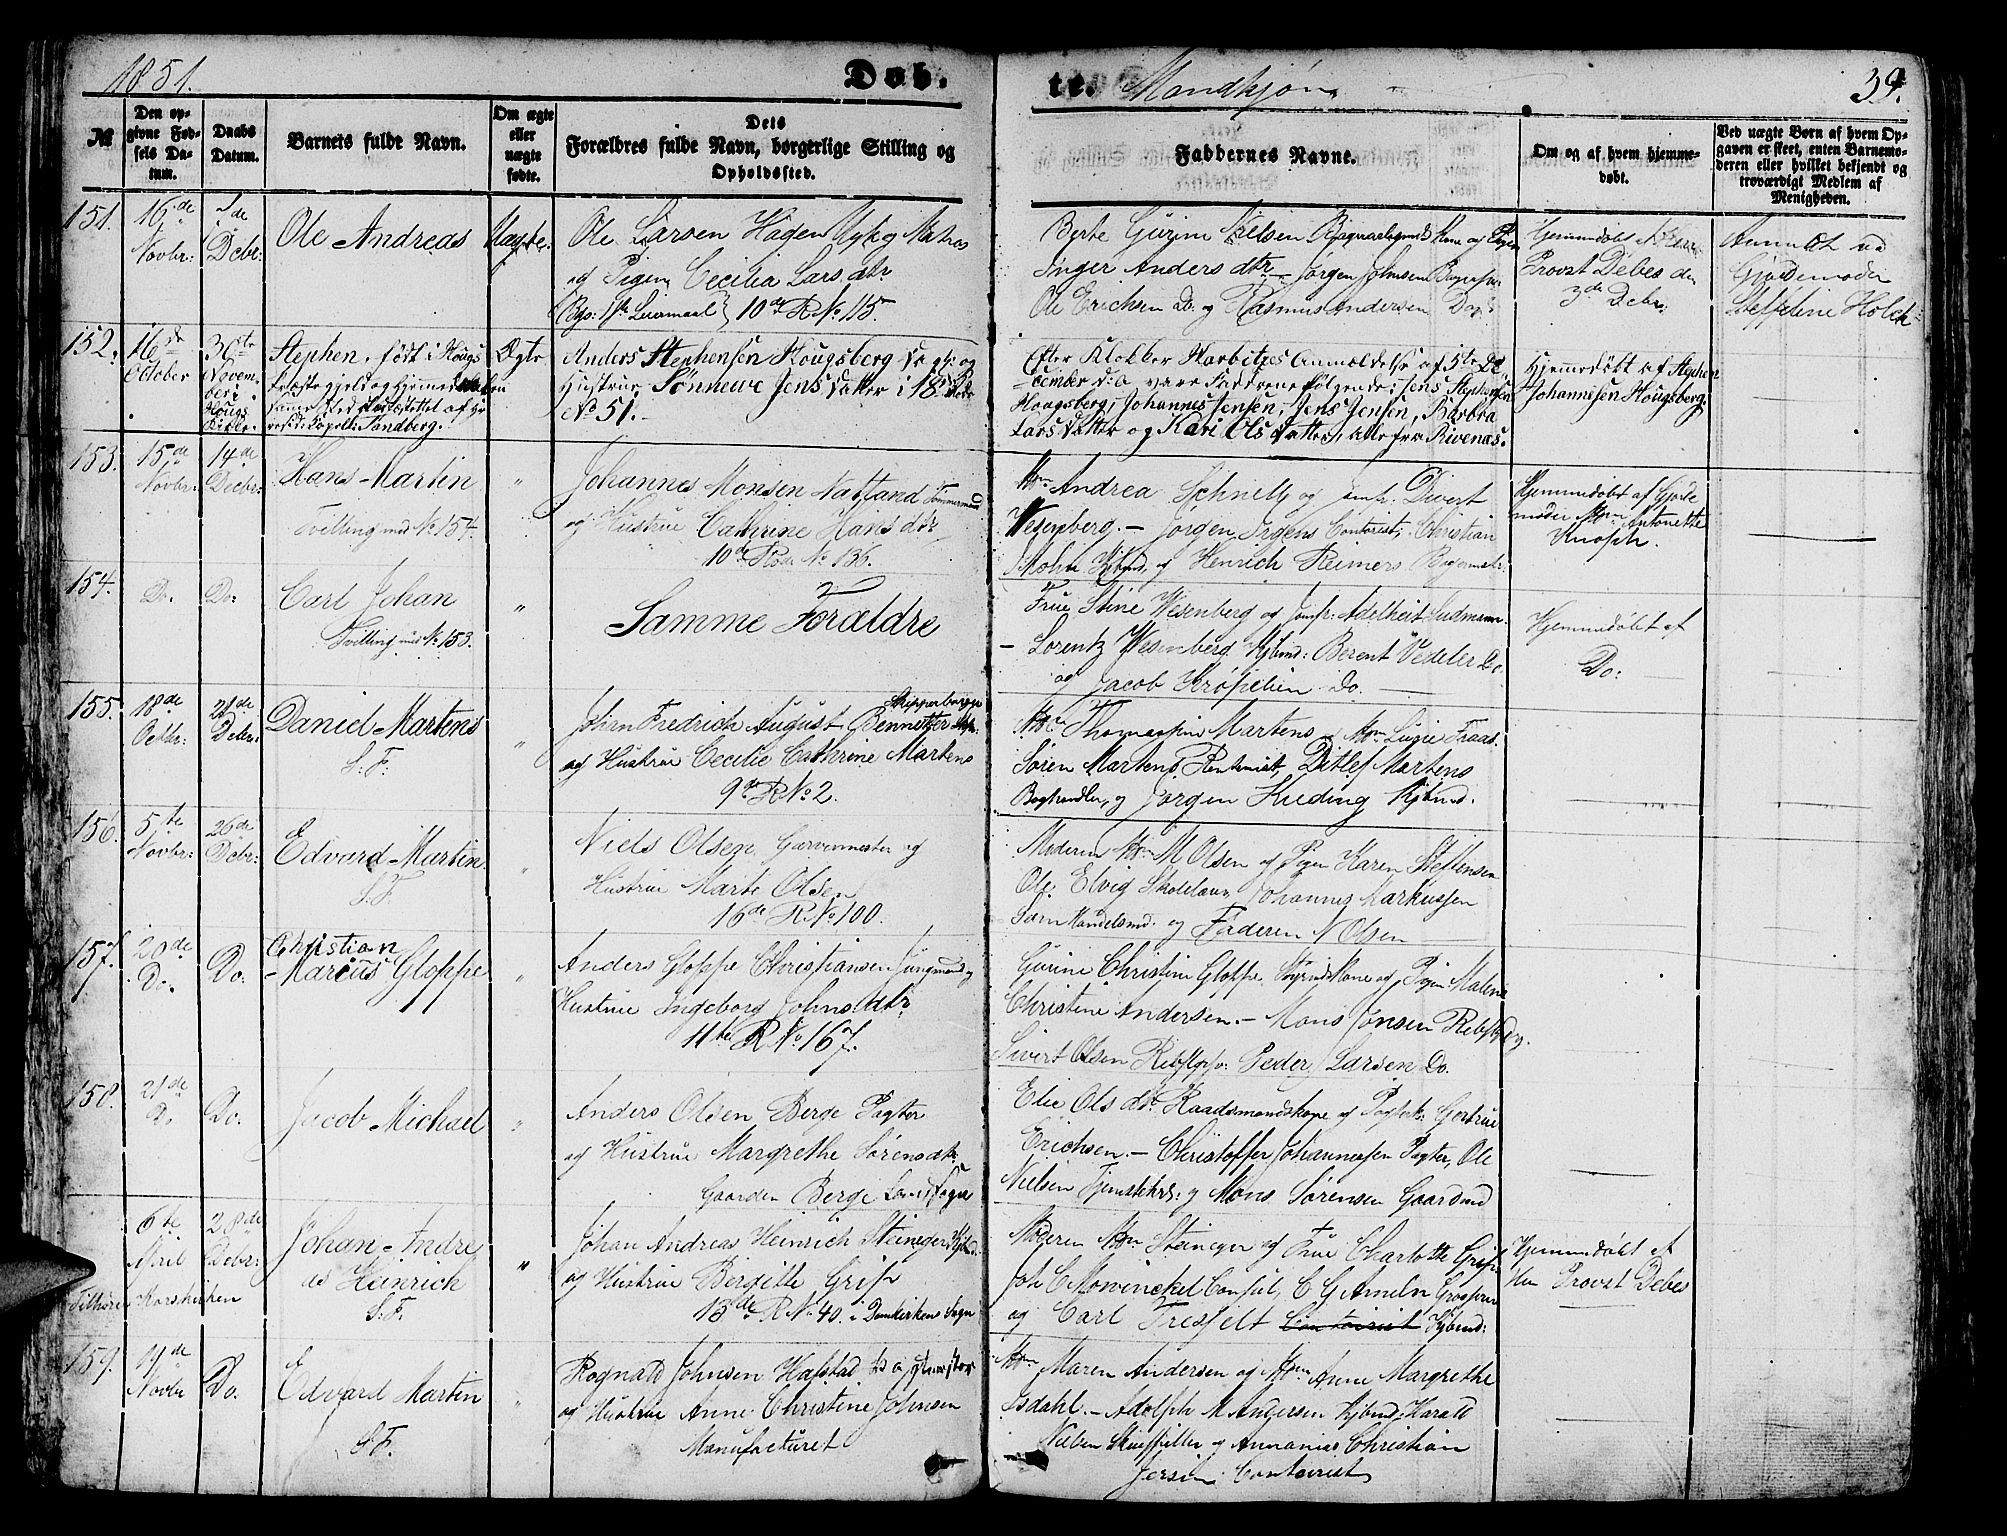 1851.
Døb-
te. Mandkjøn
39.
№
Den op-
givne Fød-
sels Da-
tum.
Daabs
Datum.
Barnets fulde Navn.
Om ægte
eller
uægte
fødte.
Dets
Forældres fulde Navn, borgerlige Stilling og
Opholdssted.
Faddernes Navne.
Om og af hvem hjemme-
døbt.
Ved uægte Børn af hvem Op-
gaven er skeet, enten Barnemo-
deren eller hvilket bekjendt og
troværdigt Medlem af
Menigheden.
151.
16de
Novbr:
Debr:
Ole Andreas
Uægte.
Ole Larsen Hagen Matros
og Pigen Cecilia Larsdtr
Leiermaal 10de R No 115.
Berte Gurine Nielsen Kone og Pigen
Inger Andersdtr – Jørgen Johnsen
Ole Erichsen Do. og Rasmus Andersen Do
Hjemmedøbt af Herr
Provst Debes den
3de Debr.
Anmeldt ved
Gjordemoder
Steffeline Holck
152.
16de
October
30te
Novem-
ber
Hougs
Kirke.
Stephen, født i Hougs
Præstegjeld og hjemmedøben
sammested stadfæstet af
resid: Capel: Sandberg.
Ægte
Anders Stephensen Hougsberg og
Hustrue Sønneve Jensdatter i 18de Rode
No 51.
Efter Klokker Harbitzes Anmeldelse af 5te De-
cember d:a: vare Faddrene følgende: Jens Stephensen
Hougsberg, Johannes Jensen, Jens Jensen, Barbra
Larsdatter og Kari Olsdatter, alle fra Rivenæs.
Hjemmedøbt af Stephen
Johannesen Hougsberg
153.
15de
Novbr:
14de
Decbr:
Hans Martin
Tvilling med No 154.
"
Johannes Monsen Natland Tømmermand
og Hustrue Cathrine Hansdtr
10de Rode No 136.
Mdm Andrea Schnell og Jomfr. Divert
Wesenberg. – Jørgen Irgens Contorist, Christian
Mohn Kjbmd, og Henrich Reimers Bagermstr.
Hjemmedøbt af Gjorde
moder Mdm Antonette
Knoph.
154.
Do.
Do:
Carl Johan
Tvilling med No 153.
"
Samme Forældre
Frue Stine Wesenberg og Jomfr. Adelheit Ludmann
– Lorentz Wesenberg Kjbmd: Berent Vedeler Do
og Jacob Krøpelien Do.
Hjemmedøbt af
Do:
155.
18de
Octbr:
21de
Debr:
Daniel Martens
S: F:
"
Skipperborger
Jørn Fredrich August Bennetter
og Hustrue Cecilie Cathrine Martens
9de R No 2.
Mdm Thomasine Martens, Mdm Lucie Fraas.
Søren Martens Rentenist, Ditlef Martens
Boghandler, og Jørgen Kieding Kjbmd.
156.
5te
Novbr:
26de
Debr:
Edvard Martin
S: F.
"
Niels Olsen Garvermester og
Hustrue Marte Olsen
16de R No 100.
Moderen Mdm M Olsen og Pigen Karen Steffensen
Ole Elvig Skolelærer, Johannes Markussen
Handelsmd. og Faderen N Olsen
157.
20de
Do.
Do:
Christian
Marcus Gloppe
"
Anders Gloppe Christiansen Jungmand og
Hustrue Ingeborg Johnsdtr
11te R No 167.
Gurine Christine Gloppe Kone og Pigen Malene
Christine Andersen. – Mons Jonsen
Sivert Olsen Peder Larsen Do.
158.
21de
Do
Do:
Jacob Michael
"
Anders Olsen Berge Pagter
og Hustrue Margrethe Sørensdtr.
Gaarden Berge Landsogn
Elie Olsdtr Kaadsmandskone og Pagterk. Gertrue
Erichsen. – Christoffer Johannesen Pagter, Ole
Nielsen Tjenstek: og Mons Sørensen Gaardmd
6te
April
28de
Debr:
Tilhører Korskirken
Johan Andre
as Heinrich
S: F.
"
Johan Andreas Heinrich Steineger Kjbmd:
og Hustrue Bergitte Grip
13de R No 40. i Domkirkens Sogn
Moderen Mdm Steineger og Frue Charlotte Grip
Joh C Mowinckel Consul, C G Ameln
og Carl Tresselt Contoirist Kjbmd:
Hjemmedøbt af
Her Provst Debes
159.
19de
Novbr
Do:
Edvard Martin
S: F.
"
Rognald Johnsen Hafstad
og Hustrue Anne Christine Johnsen
Manufacturet
Mdm Maren Andersen og Mdm Anne Margrethe
Isdahl. – Adolph M Andersen Kjbmd, Harald
Nielsen og Annanias Christian
Jersin Contoirist